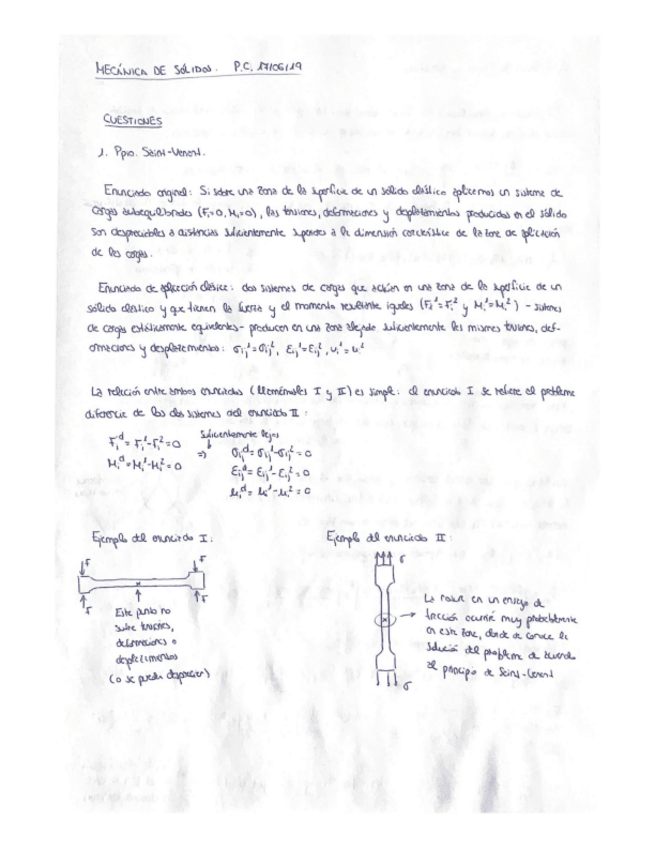 MECÁNICA DE SÓLIDOS. P.C. 17/06/19
CUESTIONES
1. Ppio. Saint-Venant.
Enunciado original: Si sobre una zona de la superficie de un sólido elástico aplicamos un sistema de
cargas autoequilibradas (Fᵢ=0, Mᵢ=0), las tensiones, deformaciones y desplazamientos producidos en el sólido
son despreciables a distancias suficientemente superiores a la dimensión característica de la zona de aplicación
de las cargas.
Enunciado de aplicación clásica: dos sistemas de cargas que actúan en una zona de la superficie de un
sólido elástico y que tienen la fuerza y el momento resultante iguales (Fᵢ¹=Fᵢ² y Mᵢ¹=Mᵢ²) - sistemas
de cargas estáticamente equivalentes - producen en una zona alejada suficientemente las mismas tensiones, def-
ormaciones y desplazamientos: σᵢⱼ¹=σᵢⱼ², εᵢⱼ¹=εᵢⱼ², uᵢ¹=uᵢ²
La relación entre ambos enunciados (llamémosles I y II) es simple: el enunciado I se refiere al problema
diferencia de los dos sistemas del enunciado II:
Suficientemente lejos
Fᵢᵈ = Fᵢ¹-Fᵢ² = 0 ⇒ σᵢⱼᵈ = σᵢⱼ¹-σᵢⱼ² = 0
Mᵢᵈ = Mᵢ¹-Mᵢ² = 0 εᵢⱼᵈ = εᵢⱼ¹-εᵢⱼ² = 0
uᵢᵈ = uᵢ¹-uᵢ² = 0
Ejemplo del enunciado I:
F
F
F
F
Este punto no
sufre tensiones,
deformaciones o
desplazamientos
(o se pueden despreciar)
Ejemplo del enunciado II:
σ
La rotura en un ensayo de
tracción ocurrirá muy probablemente
en esta zona, donde se conoce la
solución del problema de acuerdo
al principio de Saint-Venant
σ